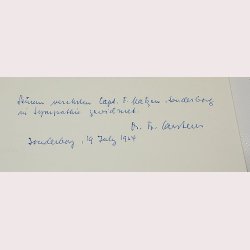 Seinem verehrten Capt. F. Matzen, Sonderborg
in Sympathie gewidmet
Dr. Fr. Carstens
Sonderborg, 19 July 1964